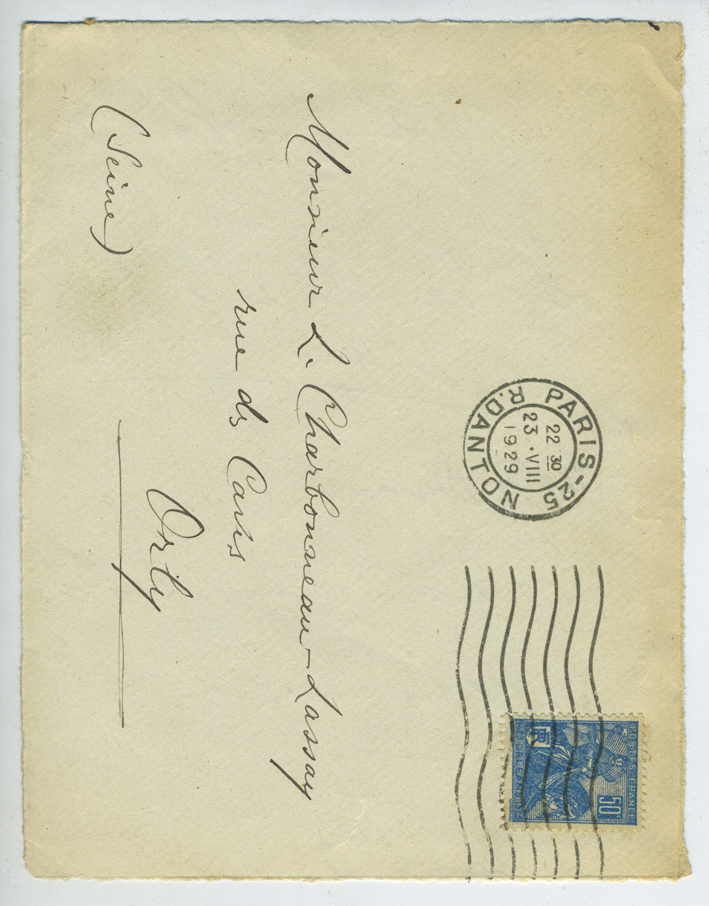 PARIS-25
R.DANTON
22 30
23.VIII
1929
POSTES-FRANCE
50
Monsieur L. Charbonneau-Lassay
rue des
Orly
(Seine)